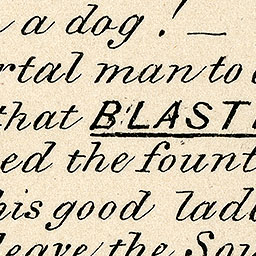 a dog! —
rtal man to
that BLAST
ed the fount
his good lad
leave the Sou